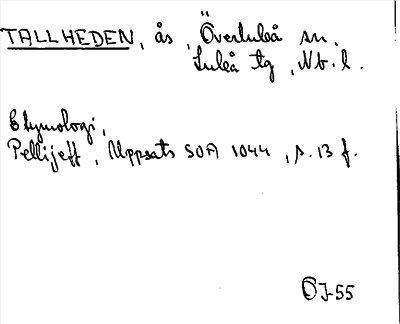 TALLHEDEN, ås, Överluleå sn.
Luleå tg, Nb. l.
Etymologi,
Pellijeff, Uppsats SOA 1044, s. 13 f.
ÖJ-55